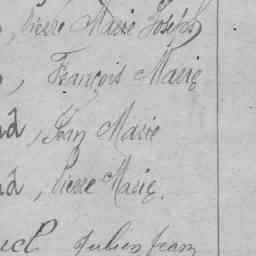 , Pierre Marie Joseph
, François Marie
, Jean Marie
, Pierre Marie.
Julien fran